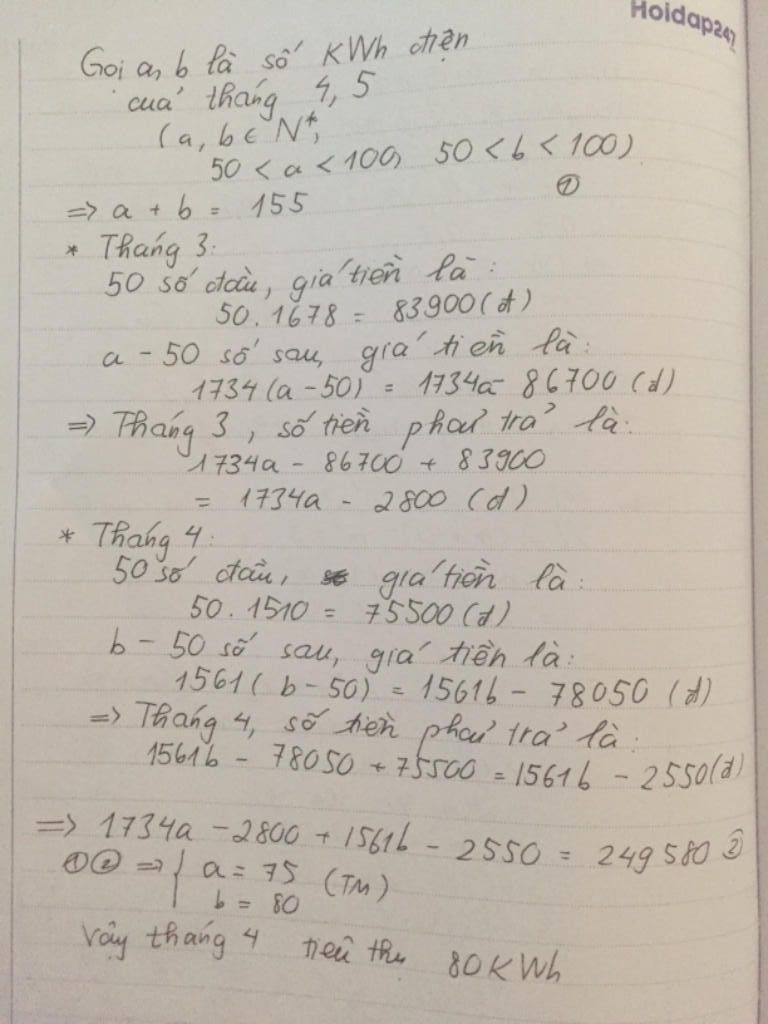 Hoidap247
Gọi a, b là số KWh điện
của tháng 4, 5
(a, b ∈ N*,
50 < a < 100, 50 < b < 100)
=> a + b = 155 ①
* Tháng 3:
50 số đầu, giá tiền là:
50.1678 = 83900 (đ)
a - 50 số sau, giá tiền là:
1734(a - 50) = 1734a - 86700 (đ)
=> Tháng 3, số tiền phải trả là:
1734a - 86700 + 83900
= 1734a - 2800 (đ)
* Tháng 4:
50 số đầu, giá tiền là:
50.1510 = 75500 (đ)
b - 50 số sau, giá tiền là:
1561(b - 50) = 1561b - 78050 (đ)
=> Tháng 4, số tiền phải trả là:
1561b - 78050 + 75500 = 1561b - 2550 (đ)
=> 1734a - 2800 + 1561b - 2550 = 249580 ②
①② => { a = 75 (TM)
b = 80
Vậy tháng 4 tiêu thụ 80KWh